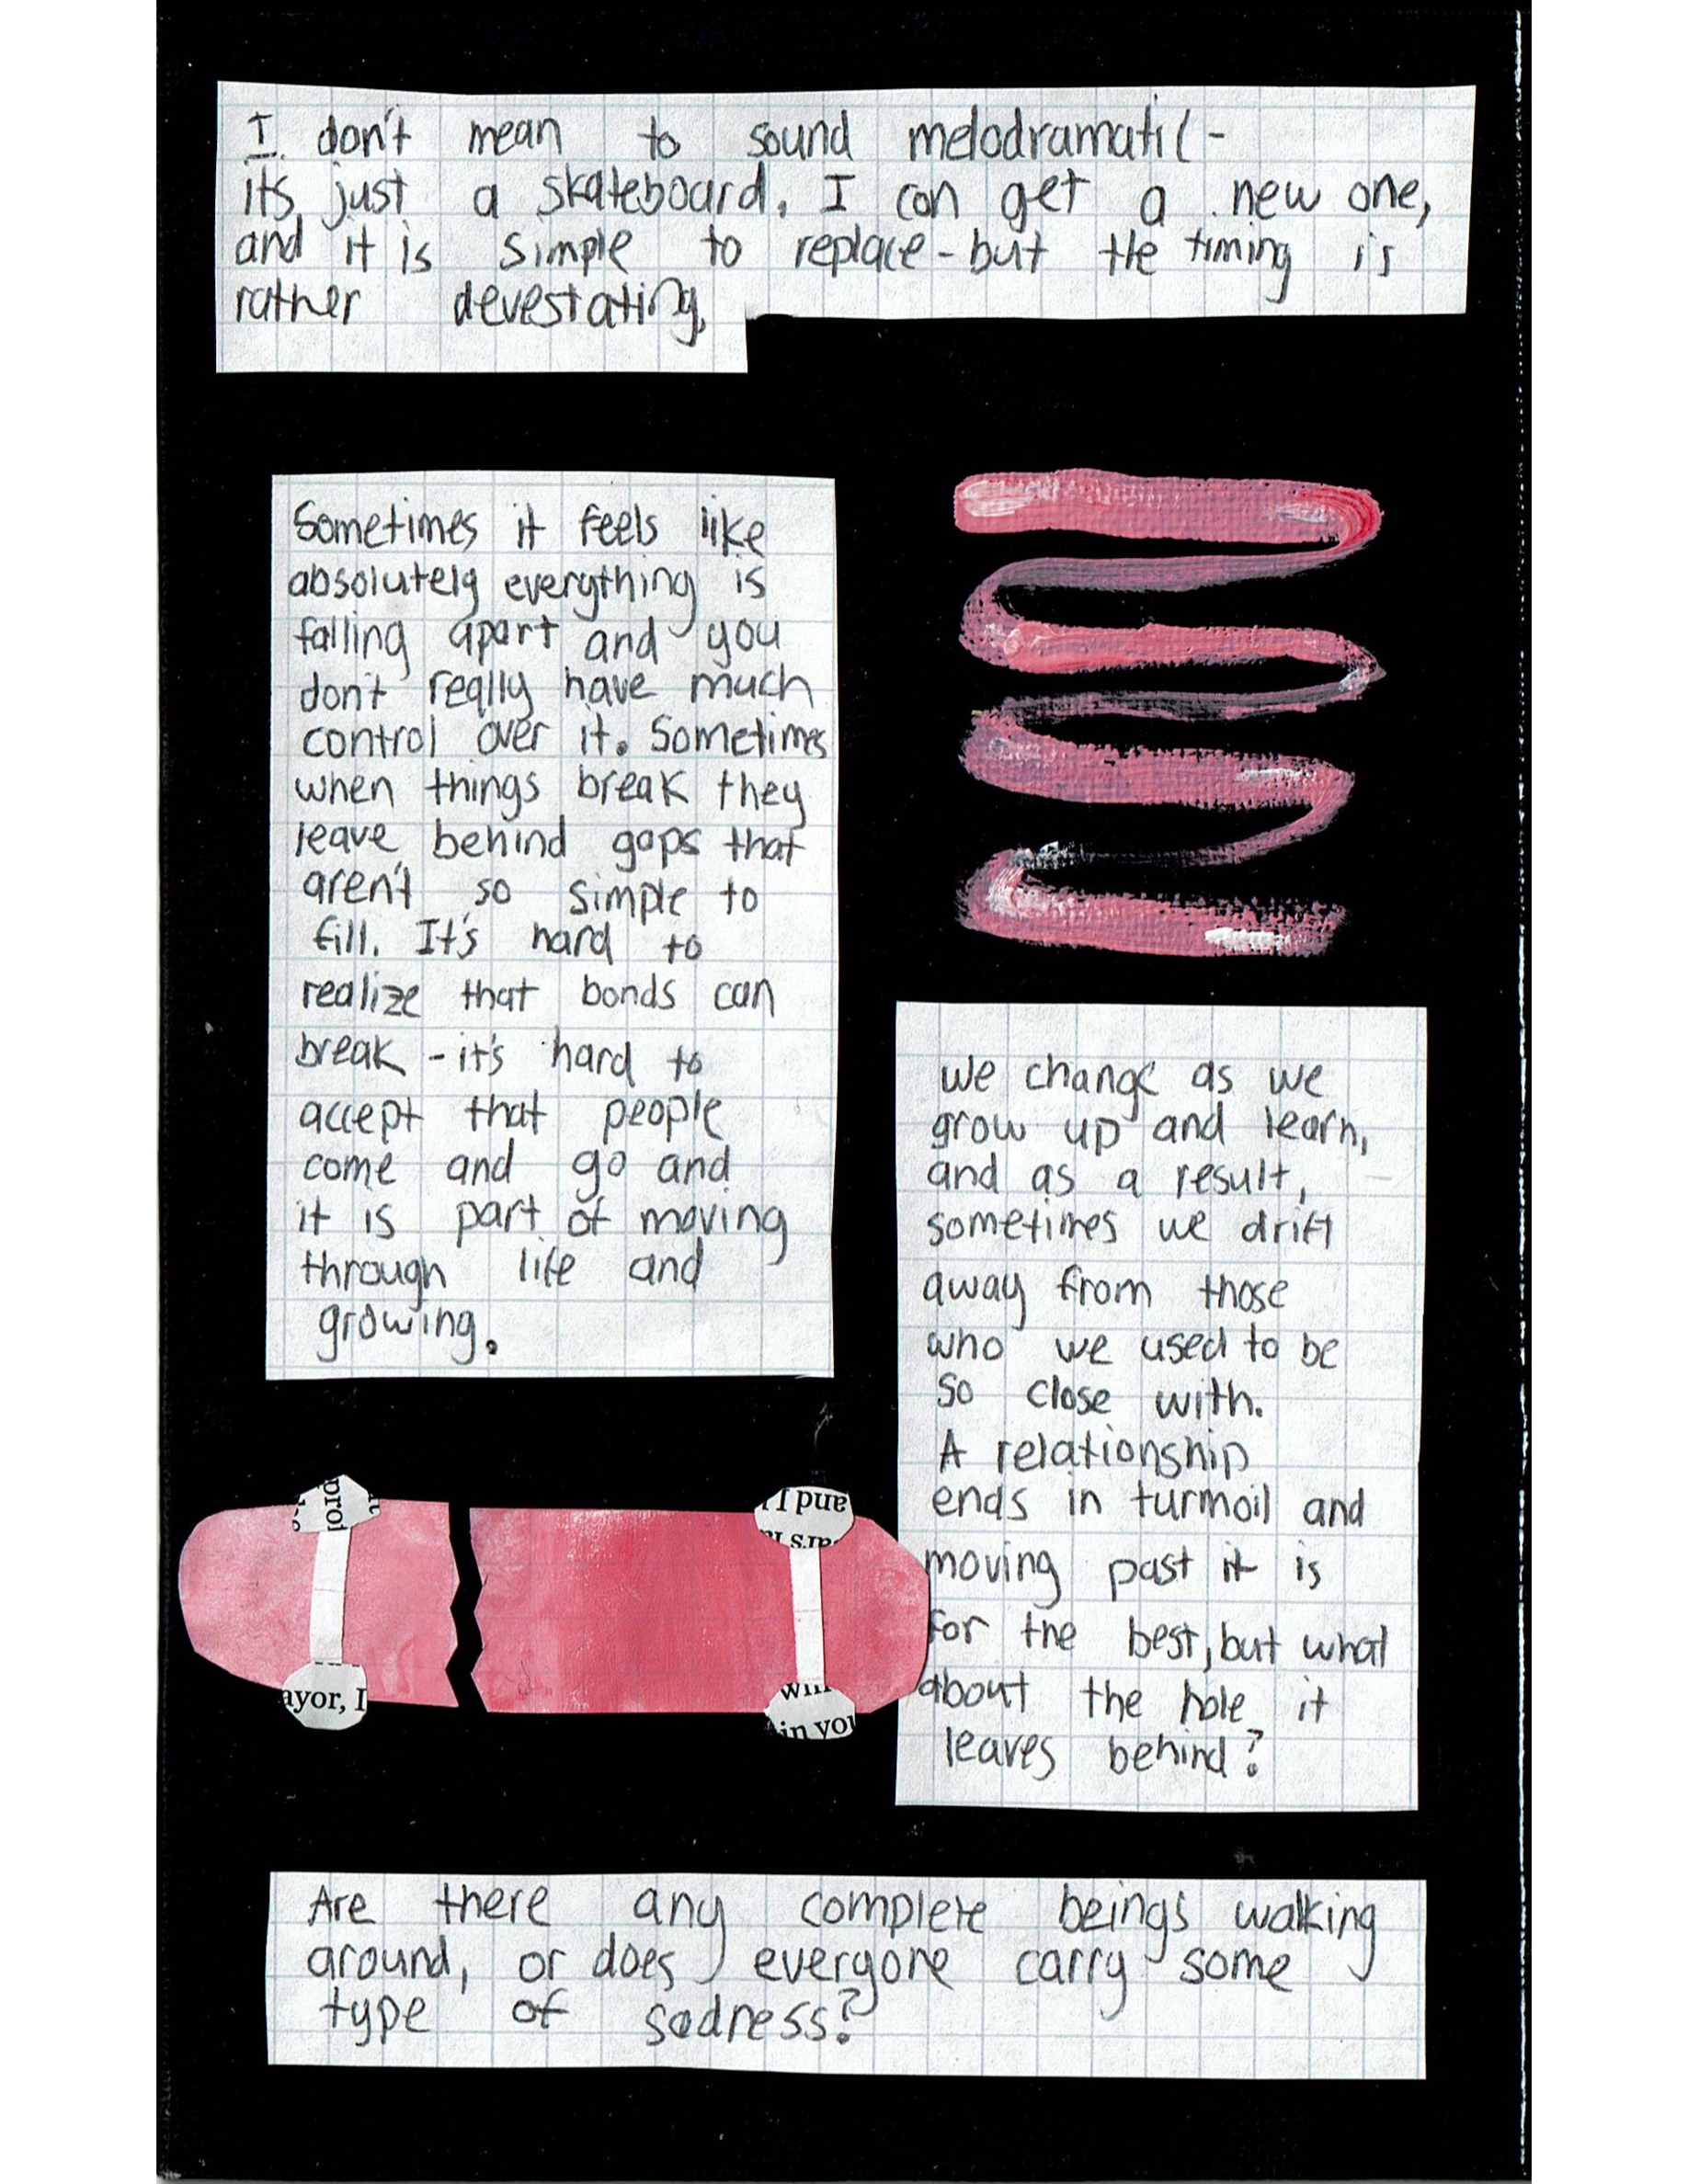 I don't mean to sound melodramatic-
its just a skateboard. I can get a new one,
and it is simple to replace - but the timing is
rather devestating.
Sometimes it feels like
absolutely everything is
falling apart and you
don't really have much
control over it. Sometimes
when things break they
leave behind gaps that
aren't so simple to
fill. It's hard to
realize that bonds can
break - it's hard to
accept that people
come and go and
it is part of moving
through life and
growing.
we change as we
grow up and learn,
and as a result,
sometimes we drift
away from those
who we used to be
so close with.
A relationship
ends in turmoil and
moving past it is
for the best, but what
about the hole it
leaves behind?
prol
and I
ayor, I
in you
Are there any complete beings walking
around, or does everyone carry some
type of sadness?